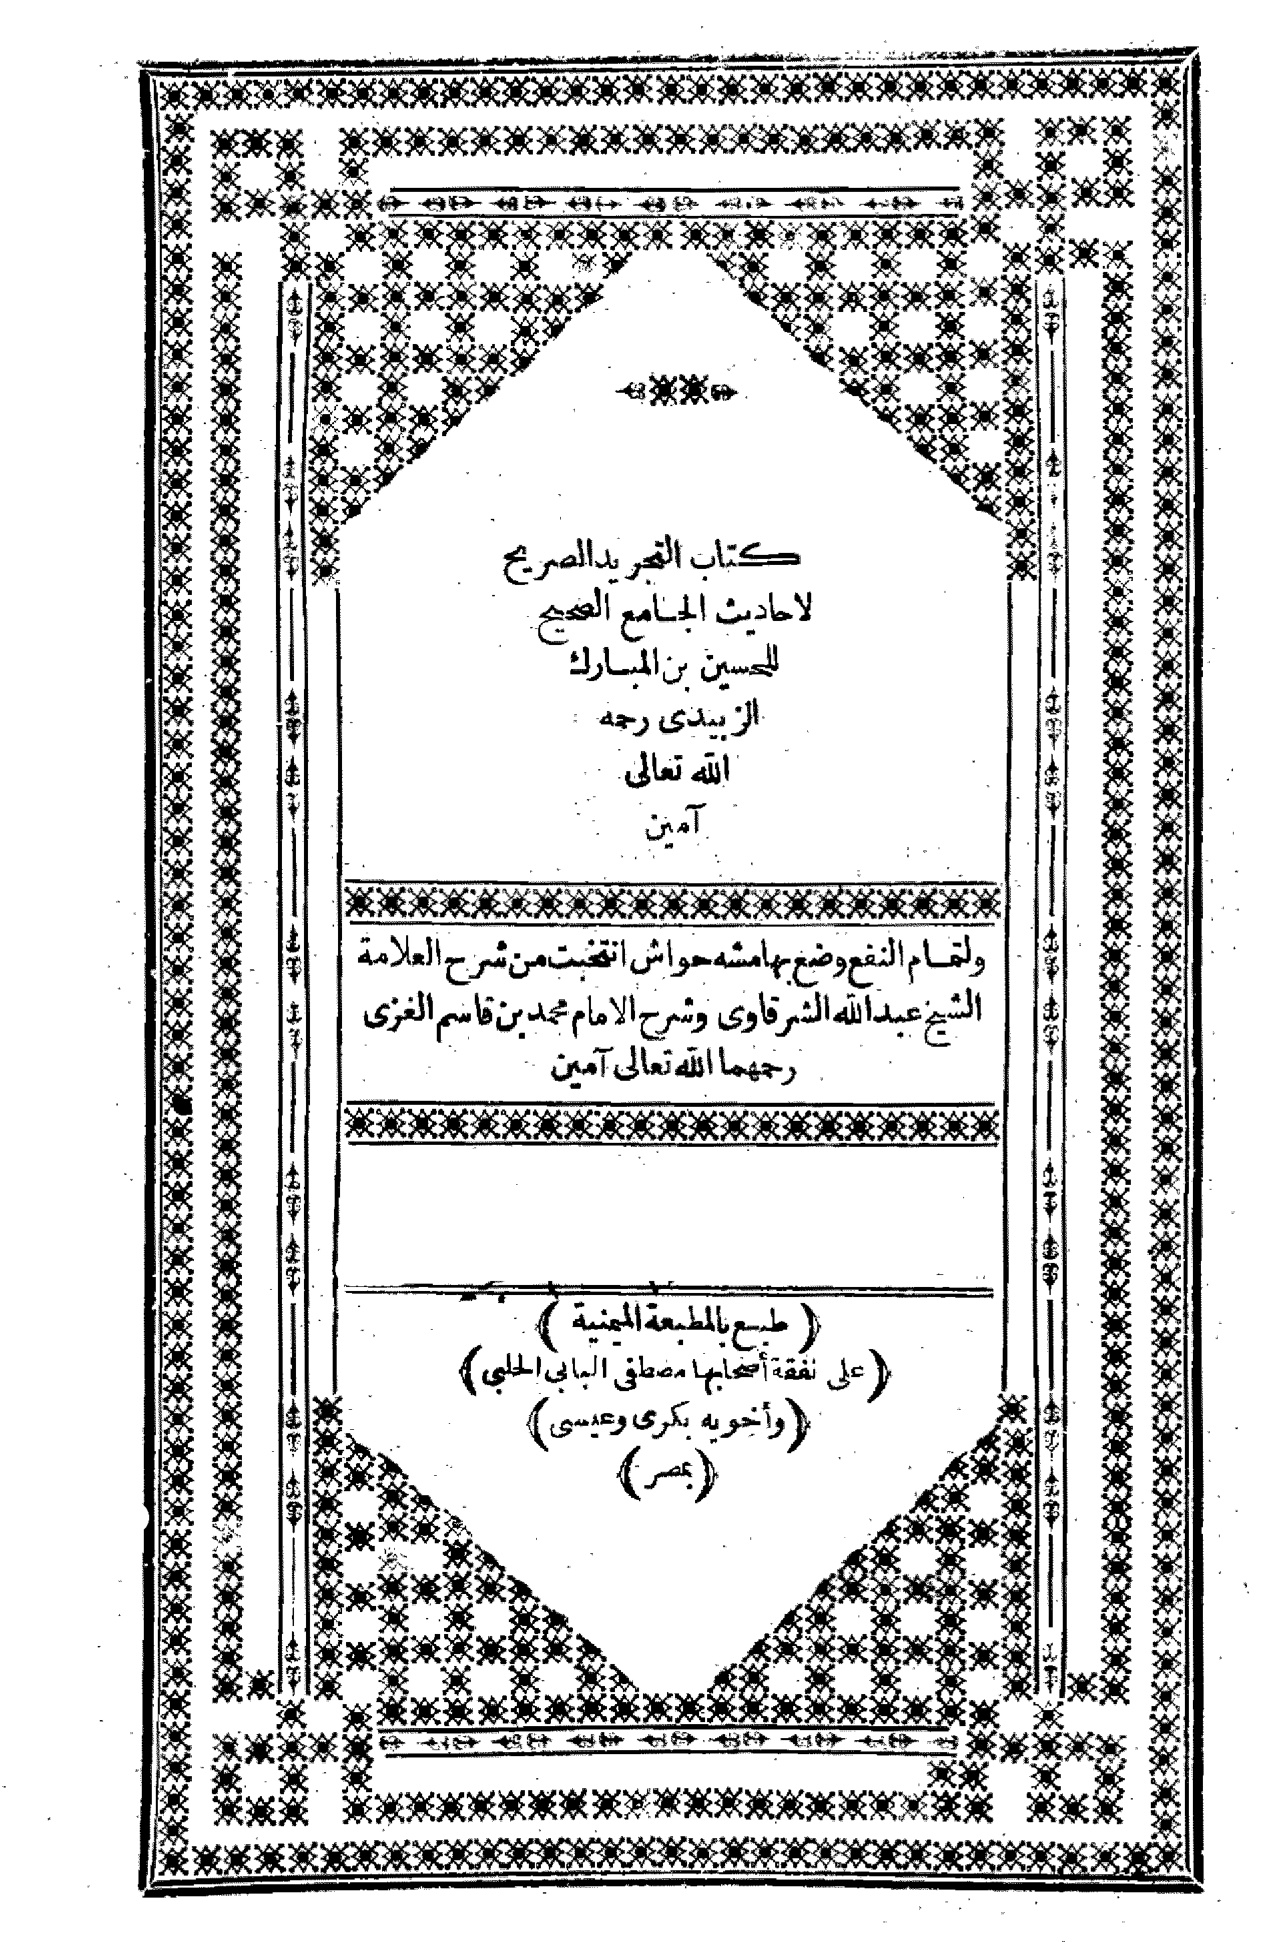 كتاب التجريد الصريح
لاحاديث الجامع الصحيح
للحسين بن المبارك
الزبيدى رحمه
الله تعالى
آمين
ولتمام النفع وضع بهامشه حواش انتخبت من شرح العلامة
الشيخ عبد الله الشرقاوى وشرح الامام محمد بن قاسم الغزى
رحمهما الله تعالى آمين
(طبع بالمطبعة الميمنية)
(على نفقة أصحابها مصطفى البابى الحلبى)
(وأخويه بكرى وعيسى)
(بمصر)